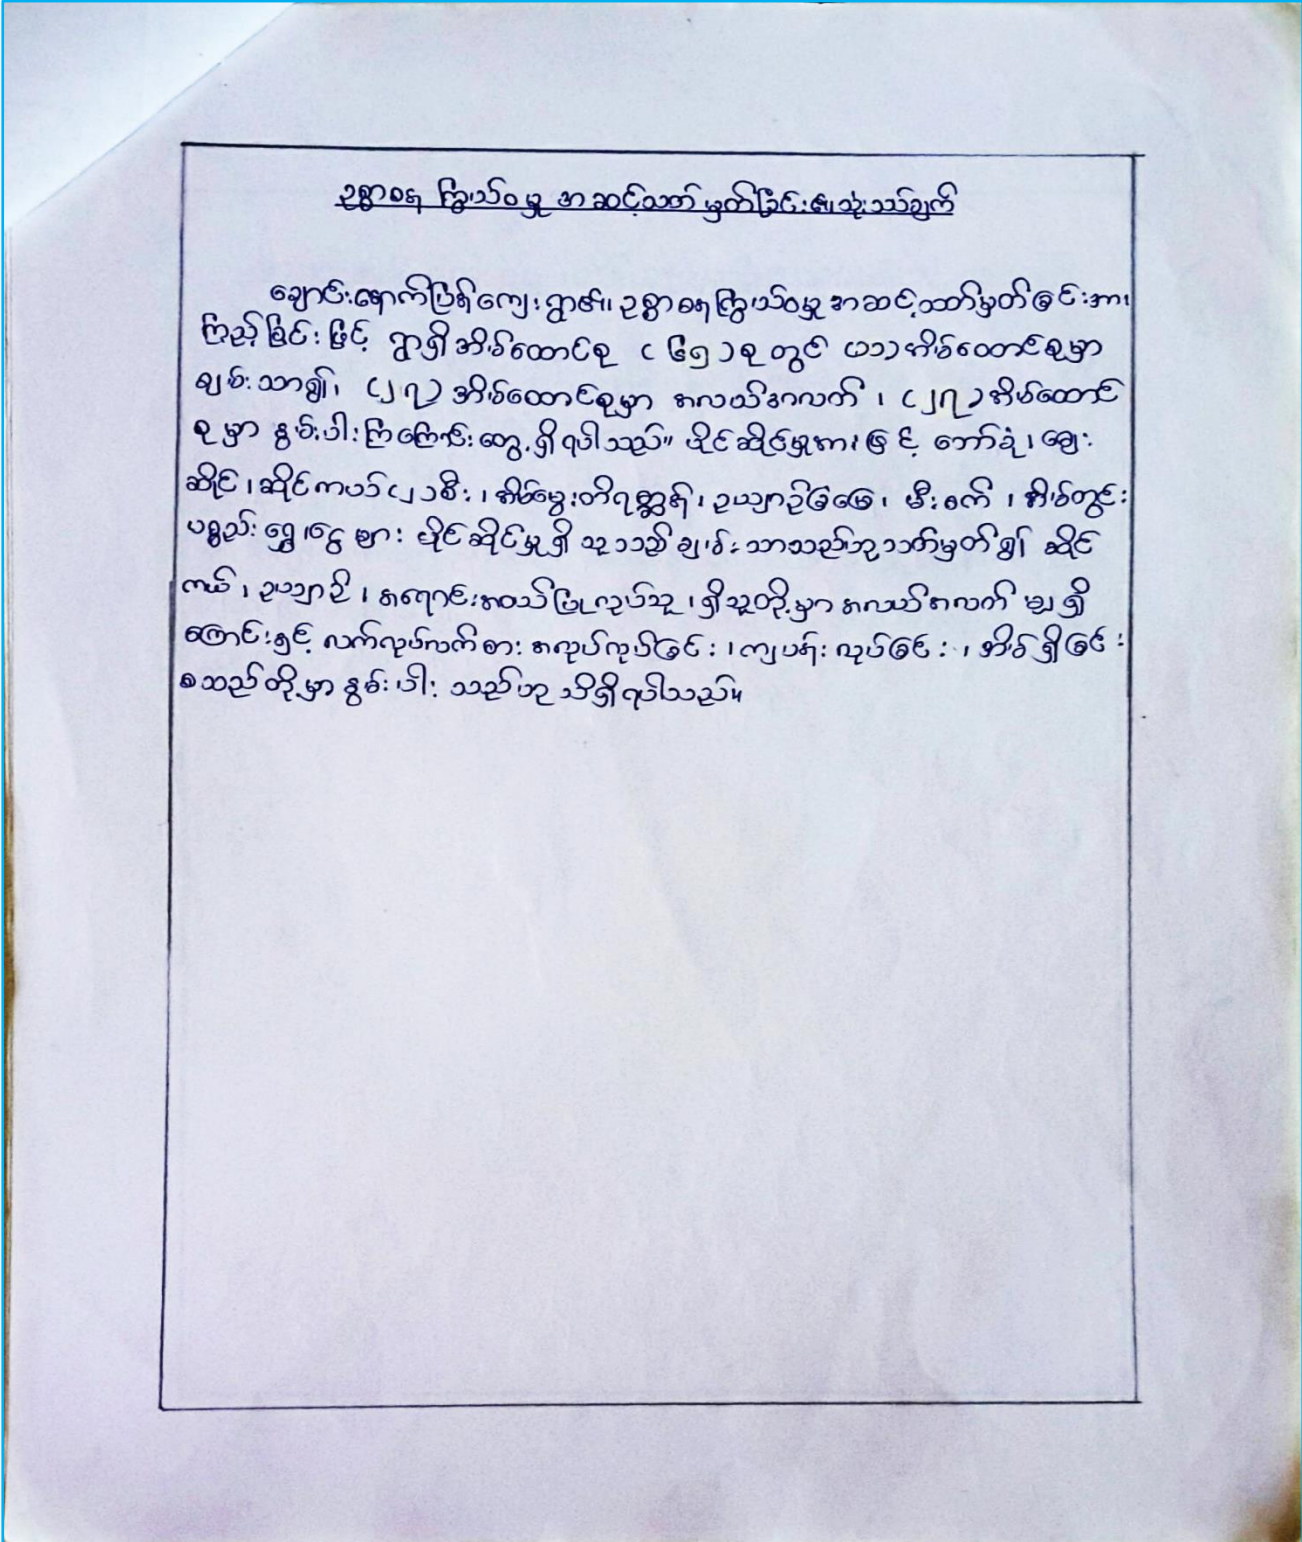 ဥစ္စာဓန ကြွယ်ဝမှု အဆင့်သတ်မှတ်ခြင်း၏သုံးသပ်ချက်
ချောင်းနောက်ပြန်ကျေးရွာ၏၊ ဥစ္စာဓနကြွယ်ဝမှုအဆင့်သတ်မှတ်ခြင်းအား၊
ကြည့်ခြင်းဖြင့် ရွာရှိအိမ်ထောင်စု (၆၅)စုတွင် (၁၁)အိမ်ထောင်စုမှာ
ချမ်းသာ၍၊ (၂၇)အိမ်ထောင်စုမှာ အလယ်အလတ်၊ (၂၇)အိမ်ထောင်
စုမှာ နွမ်းပါးကြကြောင်းတွေ့ရှိရပါသည်။ ပိုင်ဆိုင်မှုအားဖြင့် ဘော်ခုံ၊ ဈေး
ဆိုင်၊ ဆိုင်ကယ်(၂)စီး၊ အိမ်မွေးတိရစ္ဆာန်၊ ဥယျာဉ်ခြံမြေ၊ မီးစက်၊ အိမ်တွင်း
ပစ္စည်း ရွှေ၊ငွေ များ ပိုင်ဆိုင်မှုရှိသူသည်ချမ်းသာသည်ဟုသတ်မှတ်၍ ဆိုင်
ကယ်၊ ဥယျာဉ်၊ အရောင်းအဝယ်ပြုလုပ်သူ၊ ရှိသူတို့မှာ အလယ်အလတ် မျှရှိ
ကြောင်းနှင့် လက်လုပ်လက်စား အလုပ်လုပ်ခြင်း၊ ကျပန်းလုပ်ခြင်း၊ အိမ်ရှိခြင်း
စသည်တို့မှာ နွမ်းပါးသည်ဟု သိရှိရပါသည်။